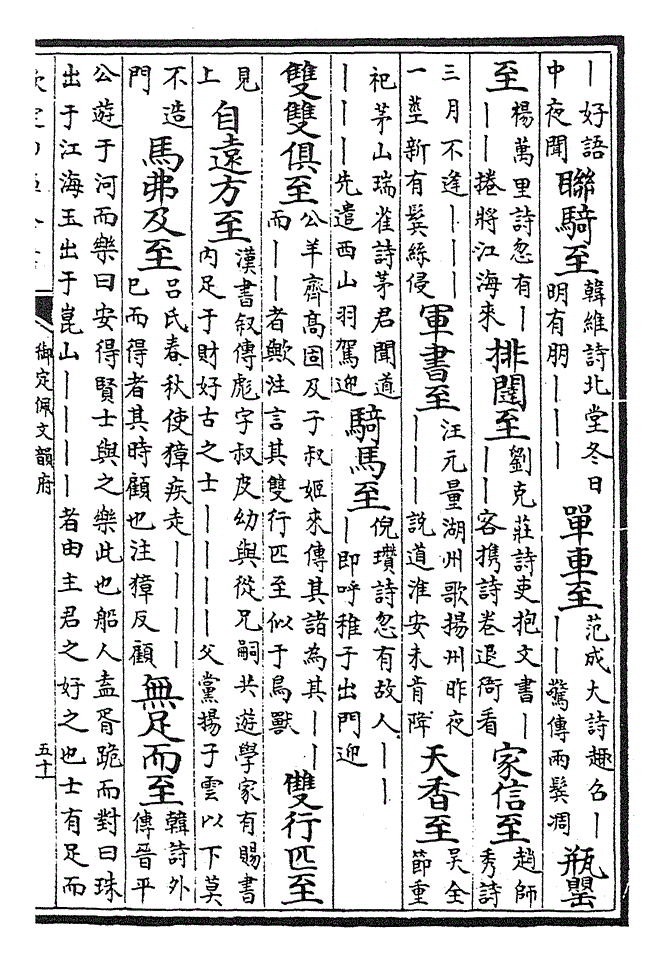 ｜好語中夜聞聯騎至韓維詩北堂冬日明有朋｜｜｜單車至范成大詩趣召｜｜｜驚傳兩鬂凋瓶罌
至楊萬里詩忽有｜｜｜捲將江海來排闥至劉克莊詩吏抱文書｜｜｜客攜詩卷退衙看家信至趙師秀詩
三月不逢｜｜｜一莖新有鬂絲侵軍書至汪元量湖州歌揚州昨夜｜｜｜說道淮安未肯降天香至吳全節重
祀茅山瑞雀詩茅君聞道｜｜｜先遣西山羽駕迎騎馬至倪瓚詩忽有故人｜｜｜即呼稚子出門迎
雙雙俱至公羊齊高固及子叔姬來傳其諸為其｜｜而｜｜者歟注言其雙行匹至似于鳥獸雙行匹至
見上自遠方至漢書叙傳彪字叔皮幼與從兄嗣共遊學家有賜書內足于財好古之士｜｜｜｜父黨揚子雲以下莫
不造門馬弗及至呂氏春秋使獐疾走｜｜｜｜已而得者其時顧也注獐反顧無足而至韓詩外傳晉平
公遊于河而樂曰安得賢士與之樂此也船人盍胥跪而對曰珠
出于江海玉出于崑山｜｜｜｜者由主君之好之也士有足而
御定佩文韻府
五十